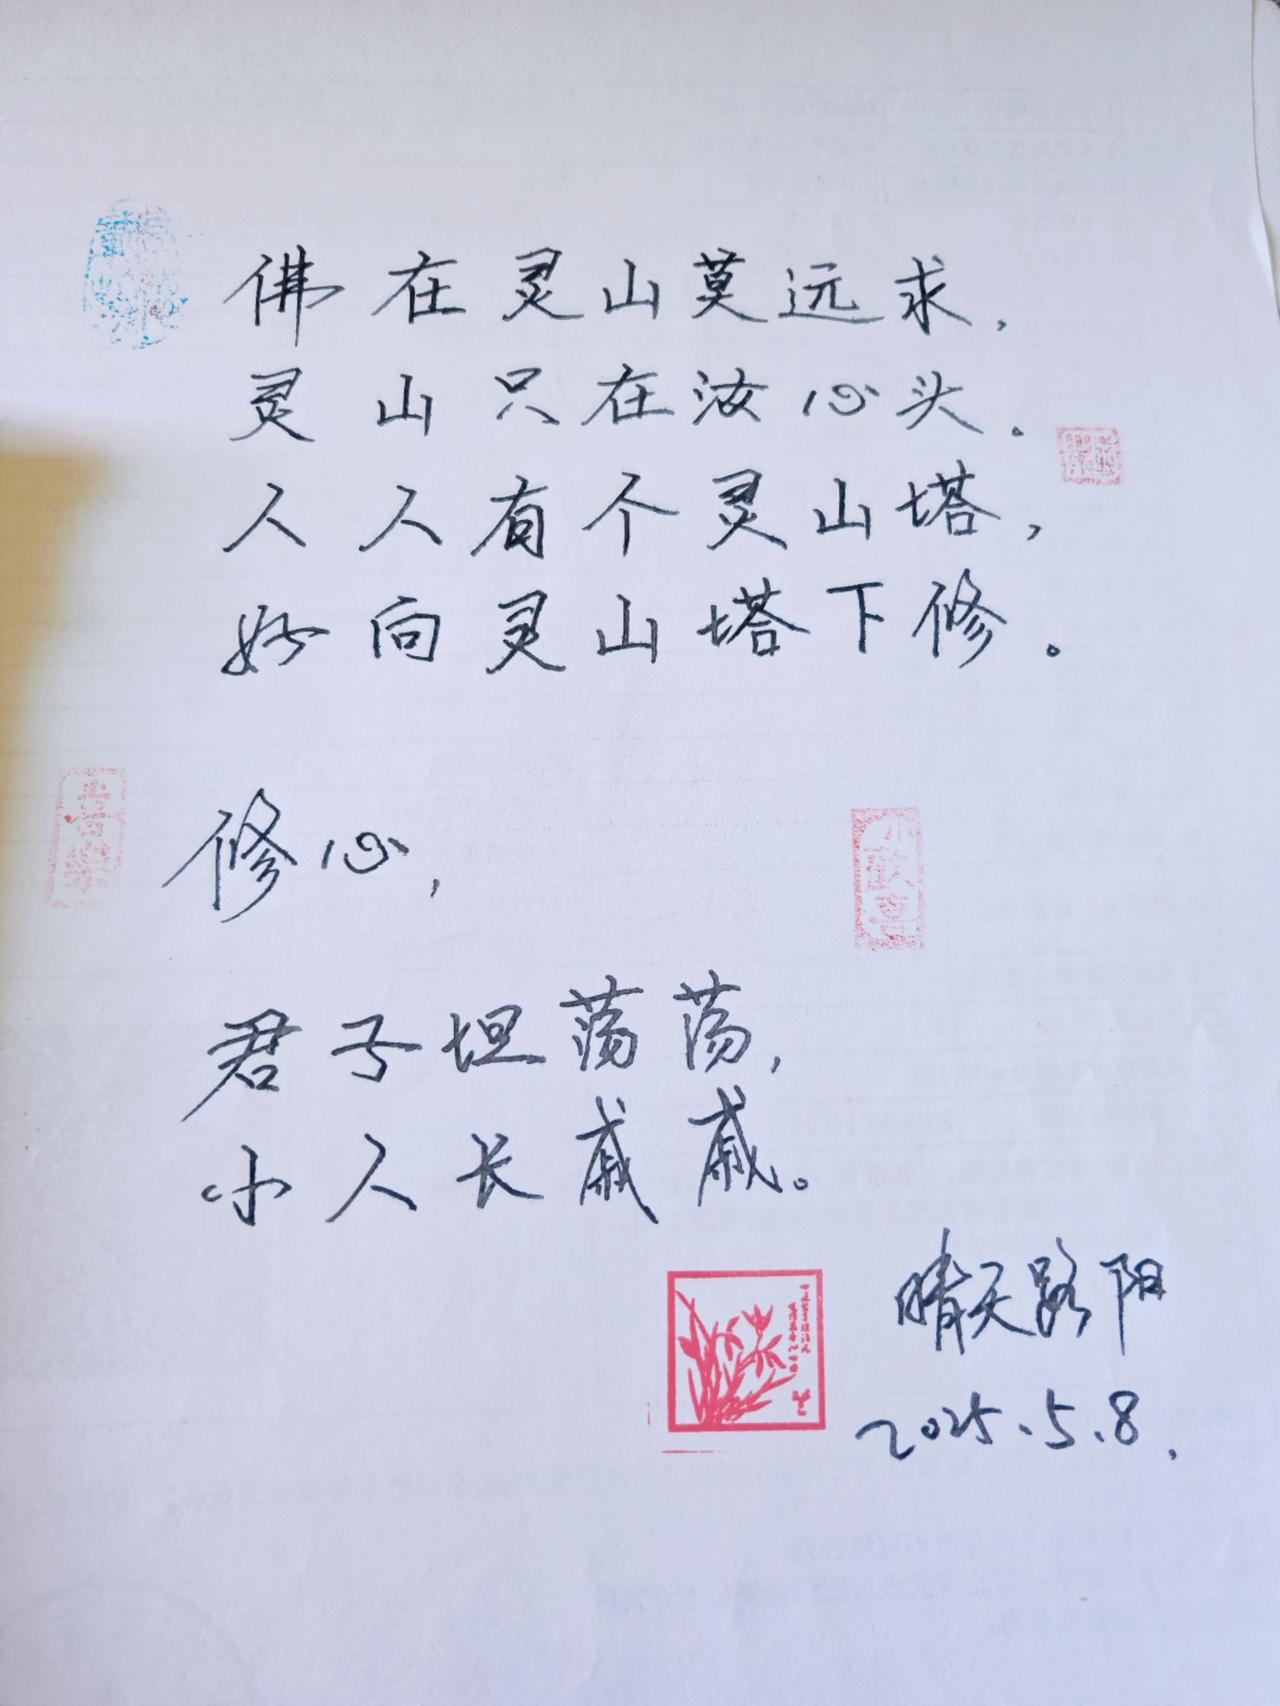 佛在灵山莫远求，
灵山只在汝心头。
人人有个灵山塔，
好向灵山塔下修。
修心，
君子坦荡荡，
小人长戚戚。
晴天路阳
2025.5.8.